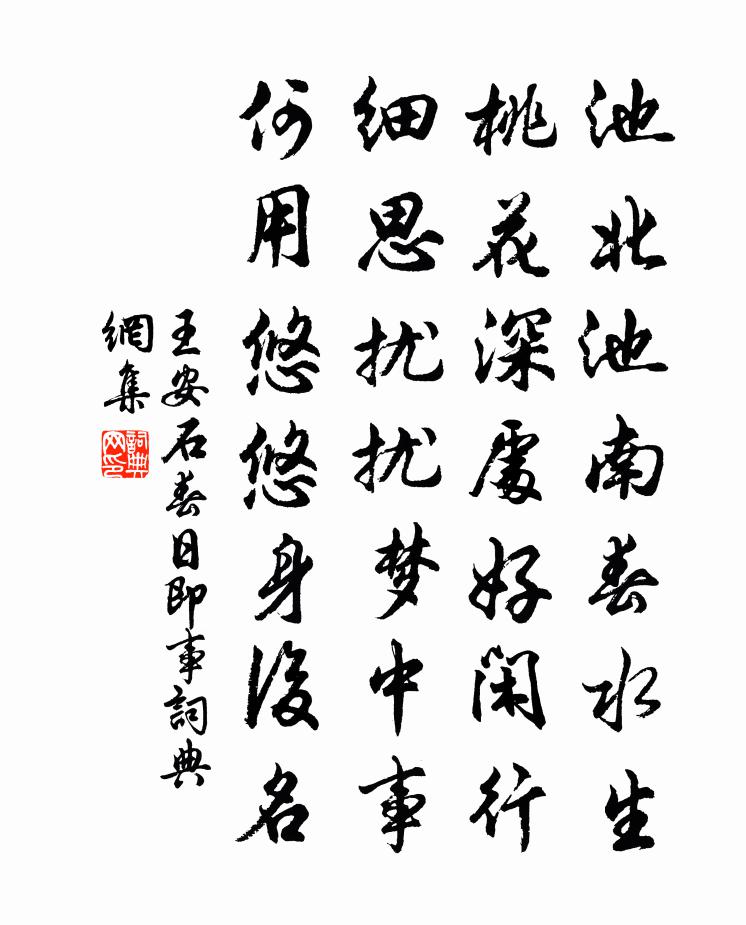 池北池南春水生
桃花深處好閑行
细思扰扰梦中事
何用悠悠身後名
王安石春日即事詞典
網集
詞典
网印